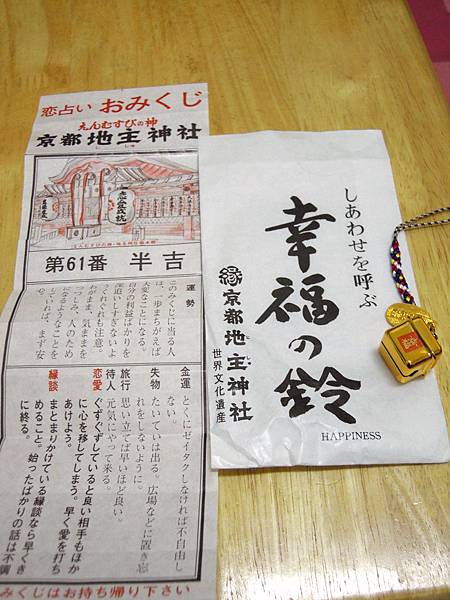 恋占い おみくじ
えんむすびの神
京都 地主神社
じしゅ
第61番 半吉
運勢
このみくじに当る人
は、一歩まちがえば
大変なことになる。
自分の利益ばかりを
深追いしすぎないよ
うくれぐれも注意。
わがまま、気ままを
つつしみ、人のため
になるようなことを
していれば、まず安
心。
金運 とくにゼイタクしなければ不自由し
ない。
失物 たいていは出る。広場などに置き忘
れをしないように。
旅行 思い立てば早いほど良い。
待人 元気にやって来る。
恋愛 ぐずぐずしていると良い相手もほか
に心を移してしまう。早く愛を打ち
あけよう。
縁談 まとまりかけている縁談なら早くき
めること。始ったばかりの話は不調
に終る。
みくじはお持ち帰り下さい
しあわせを呼ぶ
幸福の鈴
HAPPINESS
縁 京都 地主神社
じしゅ
世界文化遺産